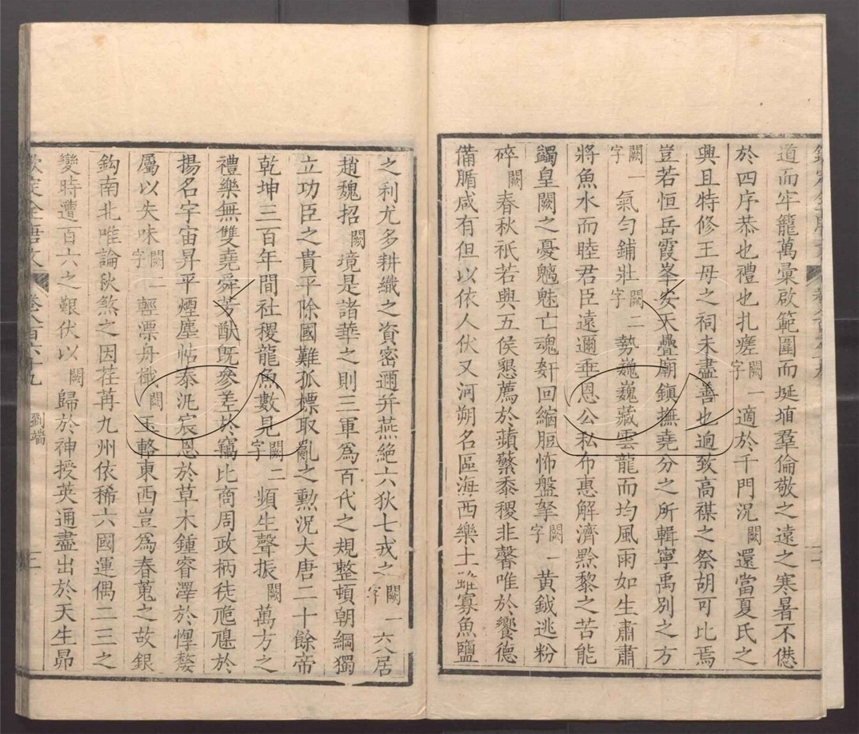 道而牢籠萬彙啟範圍而埏埴羣倫敬之遠之寒暑不愆
於四序恭也禮也扎瘥闕一字適於千門況闕還當夏氏之
興且特修王母之祠未盡善也逈致高禖之祭胡可比焉
豈若恒岳霞峯安天疊廟鎮撫堯分之所輯寧禹別之方
闕一字氣勻鋪壯闕二字勢巍巍藏雲龍而均風雨如生肅肅
將魚水而睦君臣遠邇垂恩公私布惠解濟黔黎之苦能
蠲皇闕之憂魑魅亡魂姧回縮脰怖盤拏闕一字黃鉞逃粉
碎闕春秋祇若與五侯懇薦於蘋蘩黍稷非馨唯於饗德
備腯咸有但以依人伏又河朔名區海西樂土寡魚鹽
之利尤多耕織之資密邇并燕絶六狄七戎之闕一字六八居
趙魏招闕境是諸華之則三軍為百代之規整頓朝綱獨
立功臣之貴平除國難孤標取亂之勲況大唐二十餘帝
乾坤三百年間社稷龍魚數見闕二字頻生聲振闕萬方之
禮樂無雙堯舜芳猷旣參差於竊比商周政柄徒虺隤於
揚名宇宙昇平煙塵帖泰汎宸恩於草木鍾睿澤於惸嫠
屬以失味闕一字輕漂舟檝闕玉輅東西豈為春蒐之故銀
鈎南北唯論狄煞之因荏苒九州依稀六國運偶二三之
變時遭百六之艱伏以闕歸於神授英通盡出於天生昴
欽定全唐文 卷八百六十九 劉端 三